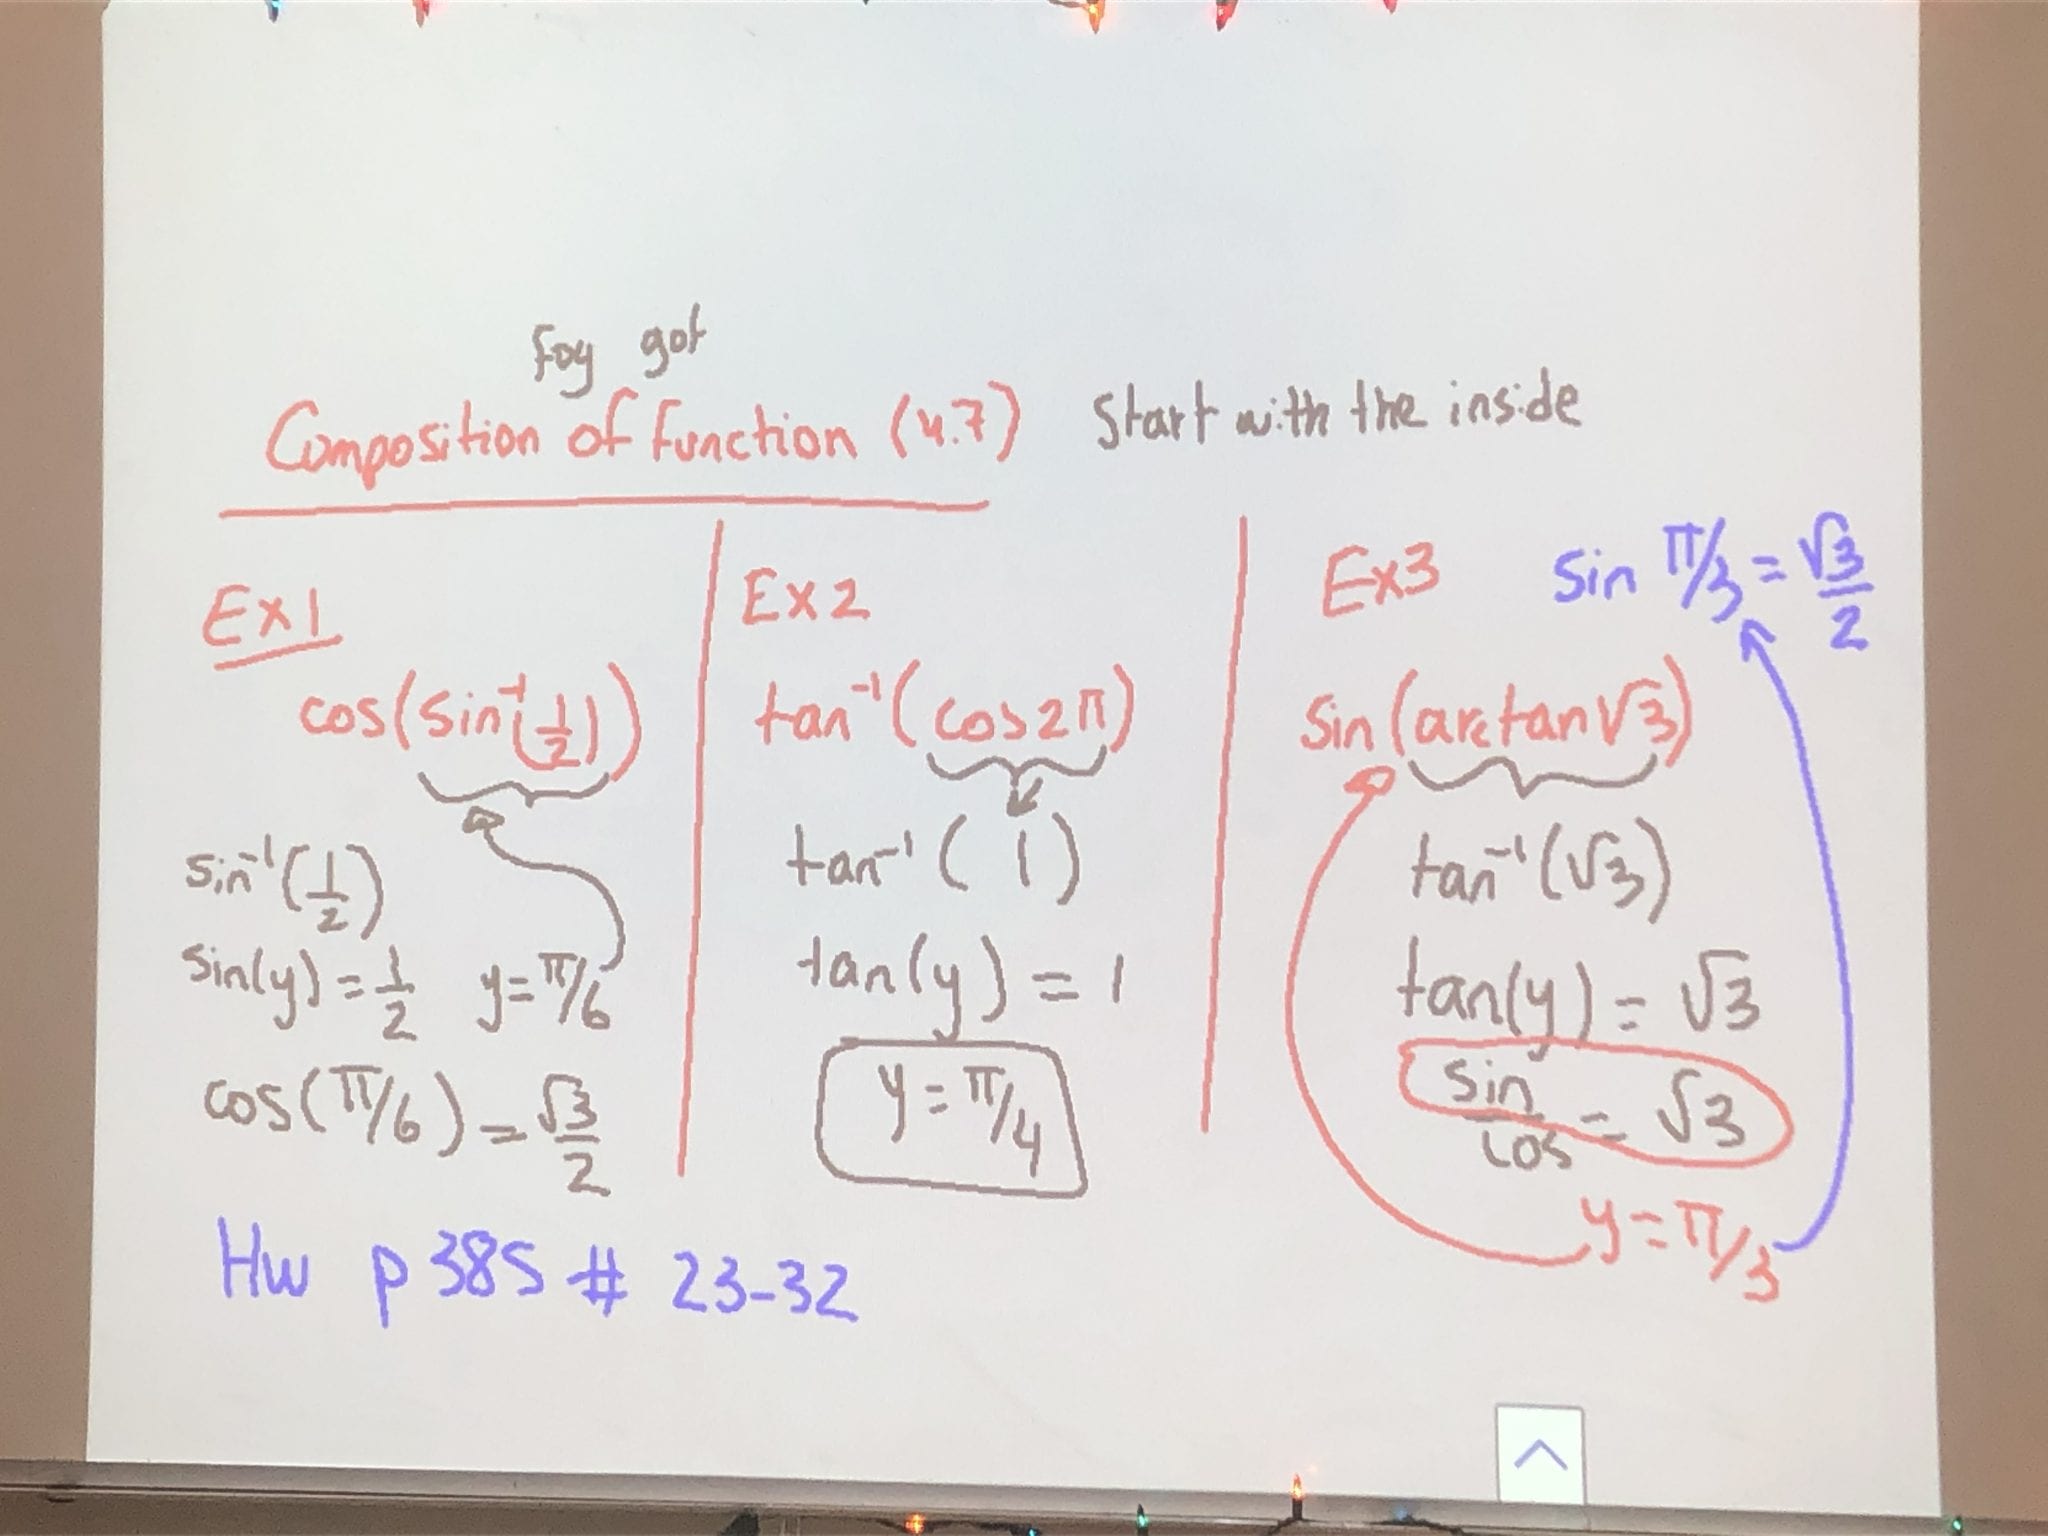 fog gof
Composition of function (4.7) Start with the inside
Ex1
cos(sin⁻¹(1/2))
sin⁻¹(1/2)
sin(y) = 1/2 y = π/6
cos(π/6) = √3/2
Ex2
tan⁻¹(cos2π)
tan⁻¹(1)
tan(y) = 1
y = π/4
Ex3 sin π/3 = √3/2
sin(arctan√3)
tan⁻¹(√3)
tan(y) = √3
sin/cos = √3
y = π/3
Hw p 385 # 23-32